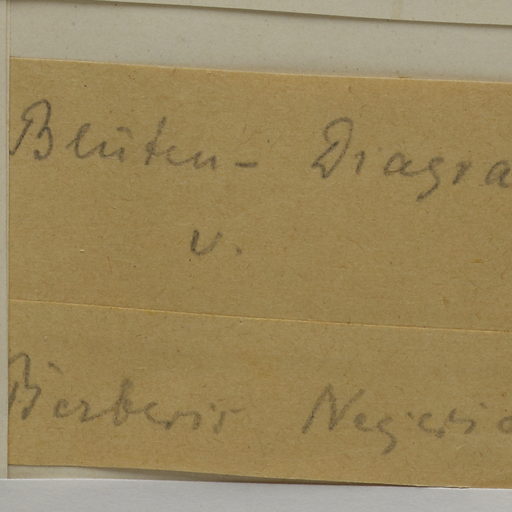 Blüten- Diagra
v.
Berberis Negeri